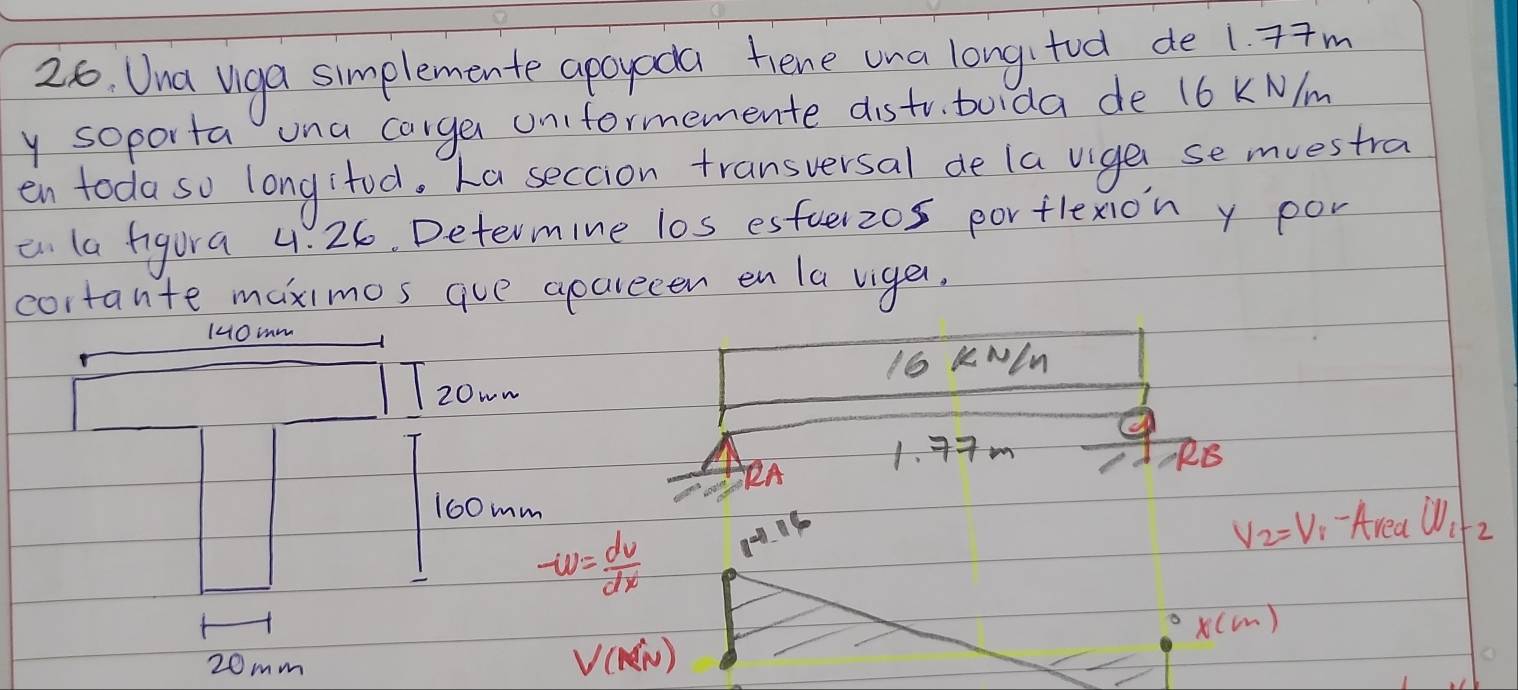 26. Una viga simplemente apoyada tiene una longitud de 1.77m
y soporta una carga uniformemente distribuida de 16 KN/m
en toda su longitud. La seccion transversal de la viga se muestra
en la figura 4.26. Determine los esfuerzos por flexión y por
cortante máximos que aparecen en la viga.
140mm
20mm
160mm
20mm
16 KN/m
1.77m
RA
RB
-w = dv/dx
14.16
V2=V1-Area W1-2
V(KN)
x(m)